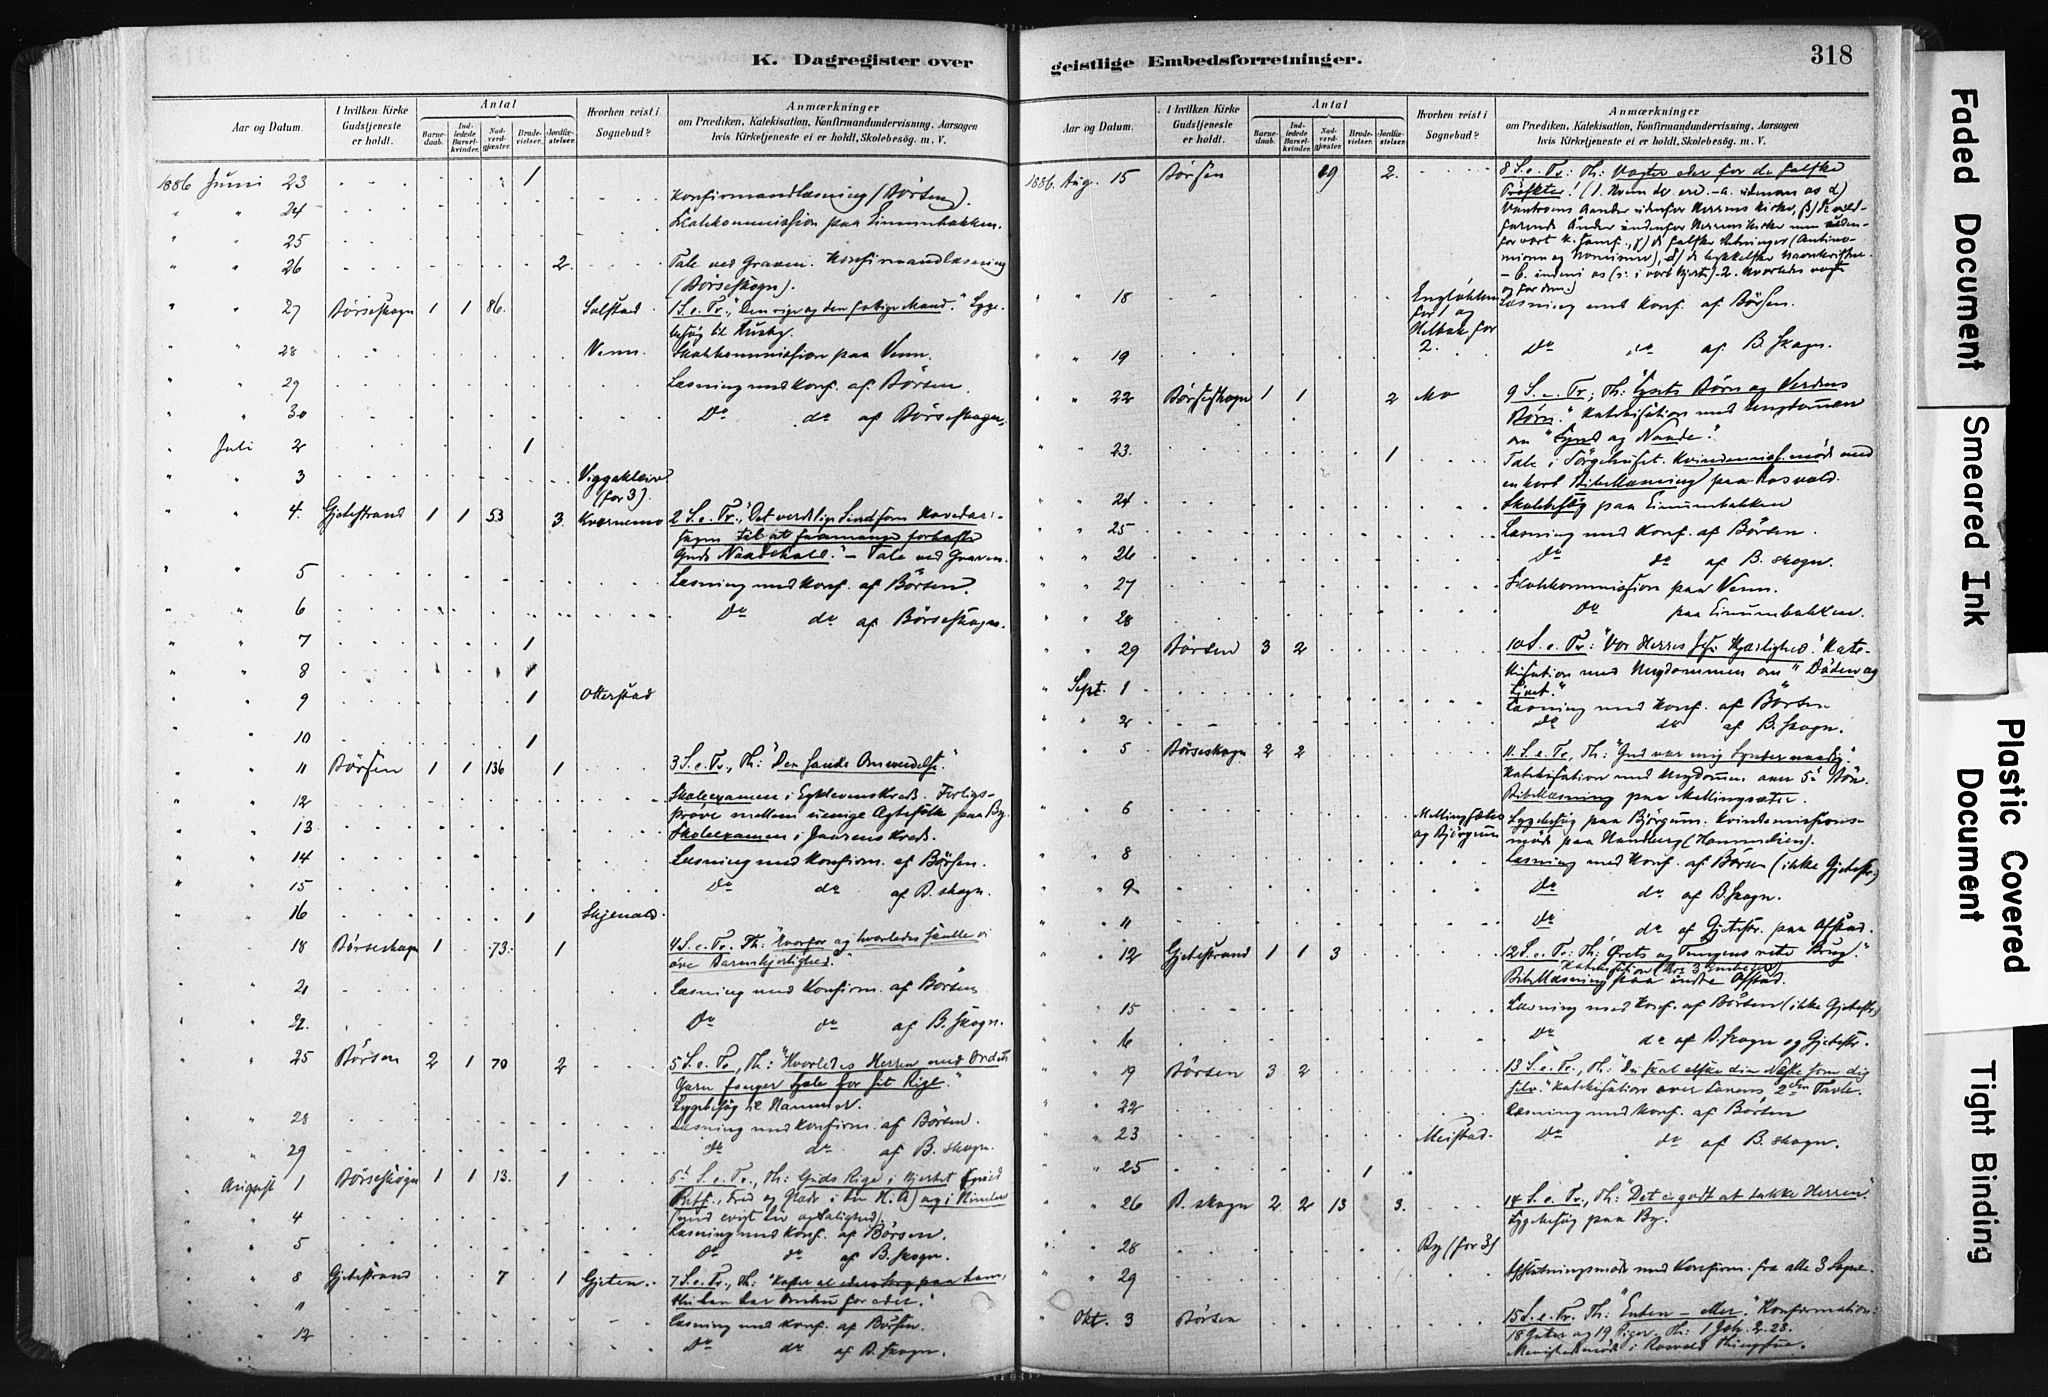 K. Dagregister over
Aar og Datum.
I hvilken Kirke Gudstjeneste er holdt.
Antal
Barnedaab.
Indledede Barselkvinder.
Nadverdgjæster.
Brudevielser.
Jordfæstelser.
Hvorhen reist i Sognebud?
Anmærkninger
om Prædiken, Katekisation, Konfirmandundervisning, Aarsagen
hvis Kirketjeneste ei er holdt, Skolebesøg. m. V.
1886 Juni 23 1 Konfirmandlæsning (Børsen).
" " 24 Skolekommission paa Einumbakken.
" " 25
" " 26 2. Tale ved Graven. Konfirmandlæsning
(Børseskogn).
" " 27 Børseskogn 1 1 86. Solstad 1 S. e. Tr., "Den rige og den fattige Mand." Syge-
besøg til Husby.
" " 28 Venn. Skolekommission paa Venn.
" " 29 Læsning med Konf. af Børsen.
" " 30 Do do af Børseskogn.
" Juli 2 1
" " 3 Viggakleiv
(for 3).
" " 4. Gjetestrand 1 1 53 3. Kvernmo 2 S. e. Tr., "Det verdslige Sind som Hovedaar-
sagen til at saamange forkaste
Guds Naadekald." - Tale ved Graven.
" " 5 Læsning med Konf. af Børsen.
" " 6 Do do af Børseskogn.
" " 7 1
" " 8 1
" " 9 1 Otterstad
" " 10 1
" " 11 Børsen 1 1 136 1 3 S. e. Tr., Th: "Den sande Omvendelse"
" " 12 Skoleexamen i Eglevens Kreds. Forligs-
prøve mellem uenige Ægtefolk paa By.
" " 13. Skoleexamen i Gaarens Kreds.
" " 14 Læsning med Konfirm. af Børsen.
" " 15 Do do af B. skogn.
" " 16 1 Skjenald
" " 18 Børseskogn 1 73. 1 4 S. e. Tr. Th: "Hvorfor og hvorledes skulle vi
øve Barmhjertighed."
" " 21 Læsning med Konfirm. af Børsen
" " 22. Do do af B. Skogn.
" " 25 Børsen 2 1 70 2 5 S. e. Tr., Th: "Hvorledes Herren med Ordets
Garn fanger Sjæle for sit Rige."
Sygebesøg til Hammer.
" " 28 Læsning med Konfirm. af Børsen.
" " 29 Do do af B. skogn.
" August 1 Børseskogn 1 1 13. 1 6 S. e. Tr., Th: Guds Rige i Hjertet (med
Retf., Fred og Glæde i den H. A) og i Himlen
(med evigt Liv og Salighed).
" " 4 Læsning med Konf. af Børsen.
" " 5 Do do af B. Skogn.
" " 8 Gjetestrand 7 1 Gjeten. 7 S. e. Tr., Th: "Kaster al eders Sorg paa ham,
thi han har Omhu for eder."
" " 11 Læsning med Konf. af Børsen.
" " 12 Do do af B. Skogn.
geistlige Embedsforretninger.
318
Aar og Datum.
I hvilken Kirke Gudstjeneste er holdt.
Antal
Barnedaab.
Indledede Barselkvinder.
Nadverdgjæster.
Brudevielser.
Jordfæstelser.
Hvorhen reist i Sognebud?
Anmærkninger
om Prædiken, Katekisation, Konfirmandundervisning, Aarsagen
hvis Kirketjeneste ei er holdt, Skolebesøg. m. V.
1886. Aug. 15 Børsen 19 2. 8 S. e. Tr: Th: Vogter eder for de falske
Profeter!
" " 18 for 1 og
for 2. Læsning med Konf. af Børsen.
" " 19 Do do af B. Skogn.
" " 22 Børseskogn 1 1 2 Mo 9 S. e. Tr; Th: "Lysets Børn og Verdens
Børn." Katekisation med Ungdommen
om "Synd og Naade."
" " 23. 1 Tale i Sørgehuset. Kvindemis. møde med
en kort Bibellæsning paa Rosvald.
" " 24 Skolebesøg paa Einumbakken
" " 25 Læsning med Konf. af Børsen.
" " 26 Do do af B. skogn.
" " 27 Skolekommission paa Venn.
" " 28 Do paa Einumbakken.
" " 29 Børsen 3 2 10 S. e. Tr: "Vor Herres Jesu Kjærlighed." Kate-
kisation med Ungdommen om "Døden og
Livet."
" Sept. 1 Læsning med Konf. af Børsen
" " 2 Do do af B. Skogn.
" " 5 Børseskogn 2 2 11. S. e. Tr, Th: "Gud vær mig Synder naadig".
Katekisation med Ungdomm. over 5te Bøn.
Bibellæsning paa Mellingsæter.
" " 6 Mellingsæter
og Bjørgum Sygebesøg paa Bjørgum. Kvindemissions-
møde paa
" " 8 Læsning med Konf. af Børsen (ikke Gjetestr.)
" " 9 Do do af B. Skogn.
" " 11 Do do af Gjetestr. paa Ofstad.
" " 12 Gjetestrand 1 1 3 12 S. e. Tr: Th: Ørets og Tungens rette Brug."
Katekisation
Bibellæsning paa indre Ofstad.
" " 15 Læsning med Konf. af Børsen (ikke Gjetestr.)
" " 16 Do do af B. Skogn og Gjetestr.
" " 19 Børsen 3 2 13 S. e. Tr., Th: "Du skal elske din Næste som dig
selv." Katekisation over Lovens 2den Tavle.
" " 22 Læsning med Konf. af Børsen
" " 23 Meistad. Do do af B. skogn.
" " 25 1
" " 26 B. skogn 2 2 13 3. 14 S. e. Tr., Th: "Det er godt at takke Herren".
Sygebesøg paa By.
" " 28 By (for 3)
" " 29 Afslutningsmøde med Konfirm. fra alle 3 Sogne.
" Okt. 3 Børsen 15 S. e. Tr. Th: "Enten - eller." Konfirmation:
18 Gutter og 19 Piger. Th: 1 Joh. 2. 28.
i Rosvold Thingstue.
Faded Document
Smeared Ink
Plastic Covered Document
Tight Binding